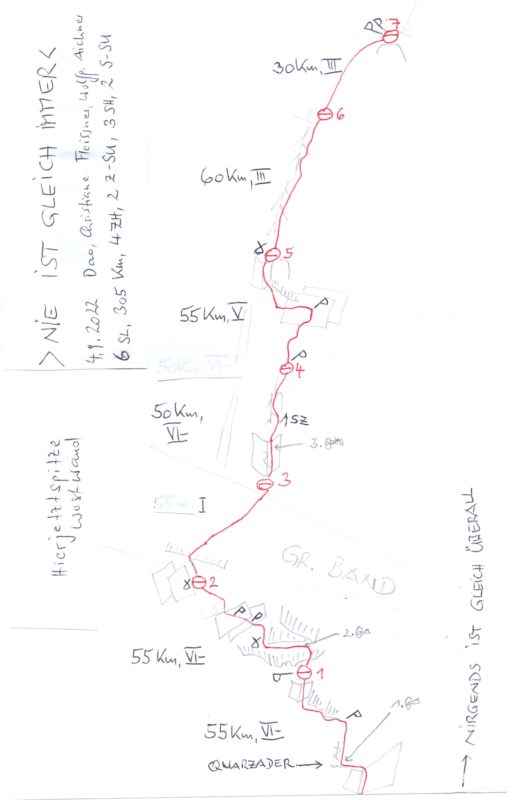 > NIE IST GLEICH IMMER <
4.9.2022 Dao, Christiane Fleissner, Wolfg. Aichner
6 SL, 305 Km, 4 ZH, 2 Z-SU, 3 SH, 2 S-SU
Hierjetztspitze
Westwand
7
30Km, III
6
60Km, III
5
55 Km, V
50Km VI-
4
50Km,
VI-
1SZ
3.
3
55m, I
GR. BAND
2
2.
55 Km, VI-
1
1.
55 Km, VI-
QUARZADER →
→ NIRGENDS IST GLEICH ÜBERALL